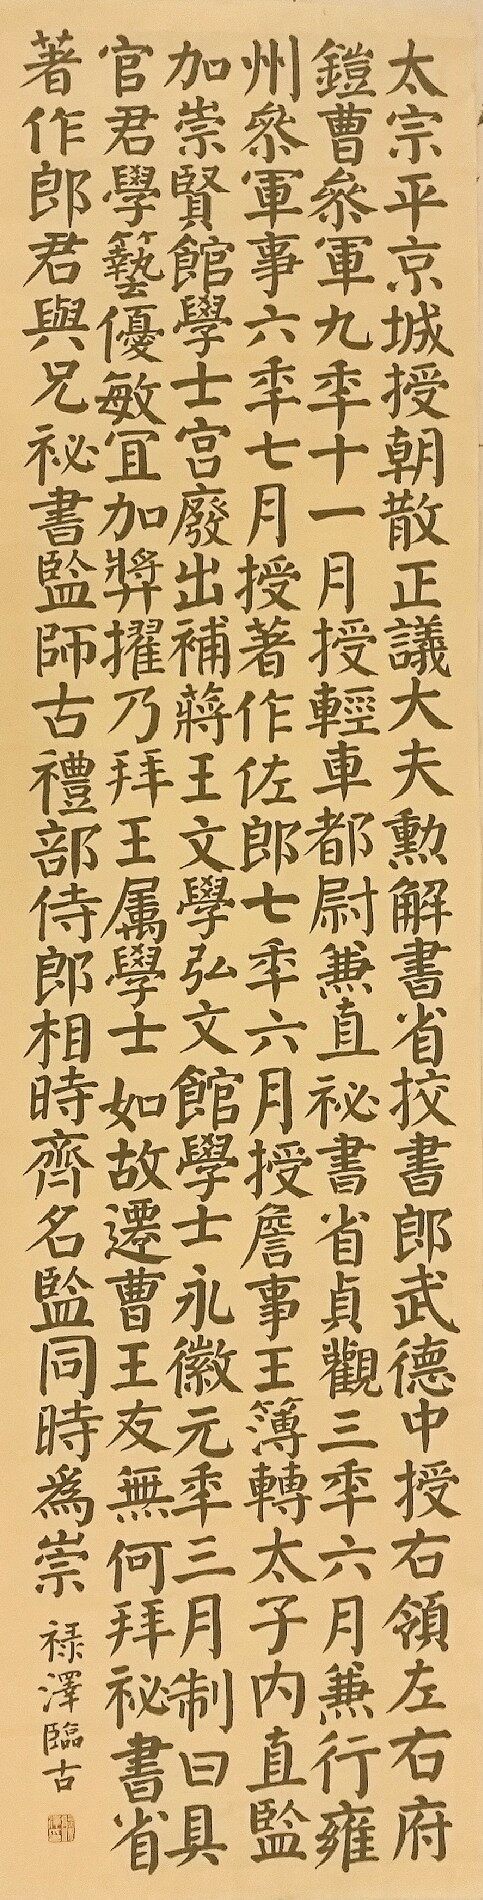 太宗平京城授朝散正議大夫勳解書省挍書郎武德中授右領左右府
鎧曹叅軍九秊十一月授輕車都尉兼直祕書省貞觀三秊六月兼行雍
州叅軍事六秊七月授著作佐郎七秊六月授詹事王簿轉太子内直監
加崇賢館學士宮廢出補蔣王文學弘文館學士永徽元秊三月制曰具
官君學藝優敏冝加奬擢乃拜王属學士如故遷曹王友無何拜祕書省
著作郎君與兄祕書監師古禮部侍郎相時齊名監同時為崇
禄澤臨古